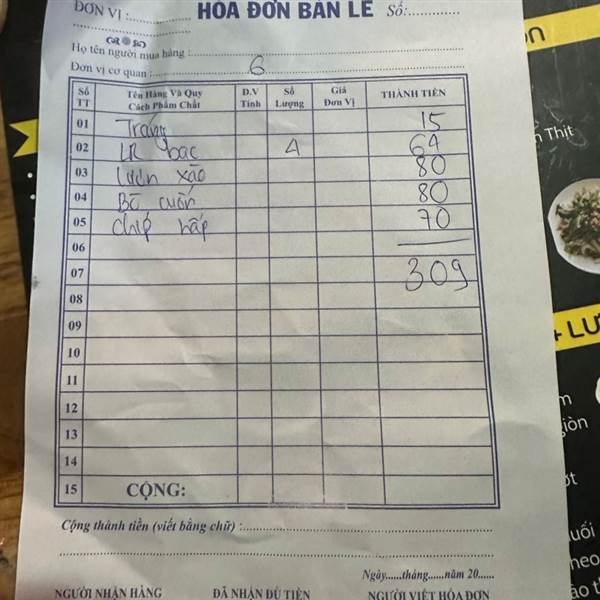 ĐƠN VỊ:
HÓA ĐƠN BÁN LẺ Số:
Họ tên người mua hàng :
Đơn vị cơ quan : 6
Số TT Tên Hàng Và Quy Cách Phẩm Chất Đ.V Tính Số Lượng Giá Đơn Vị THÀNH TIỀN
01 Trắng 15
02 LR bạc 4 64
03 lươn xào 80
04 Bò cuốn 80
05 chíp hấp 70
06
07 309
08
09
10
11
12
13
14
15 CỘNG:
Cộng thành tiền (viết bằng chữ) :
Ngày......tháng......năm 20......
NGƯỜI NHẬN HÀNG ĐÃ NHẬN ĐỦ TIỀN NGƯỜI VIẾT HÓA ĐƠN
Thịt
+ LƯ